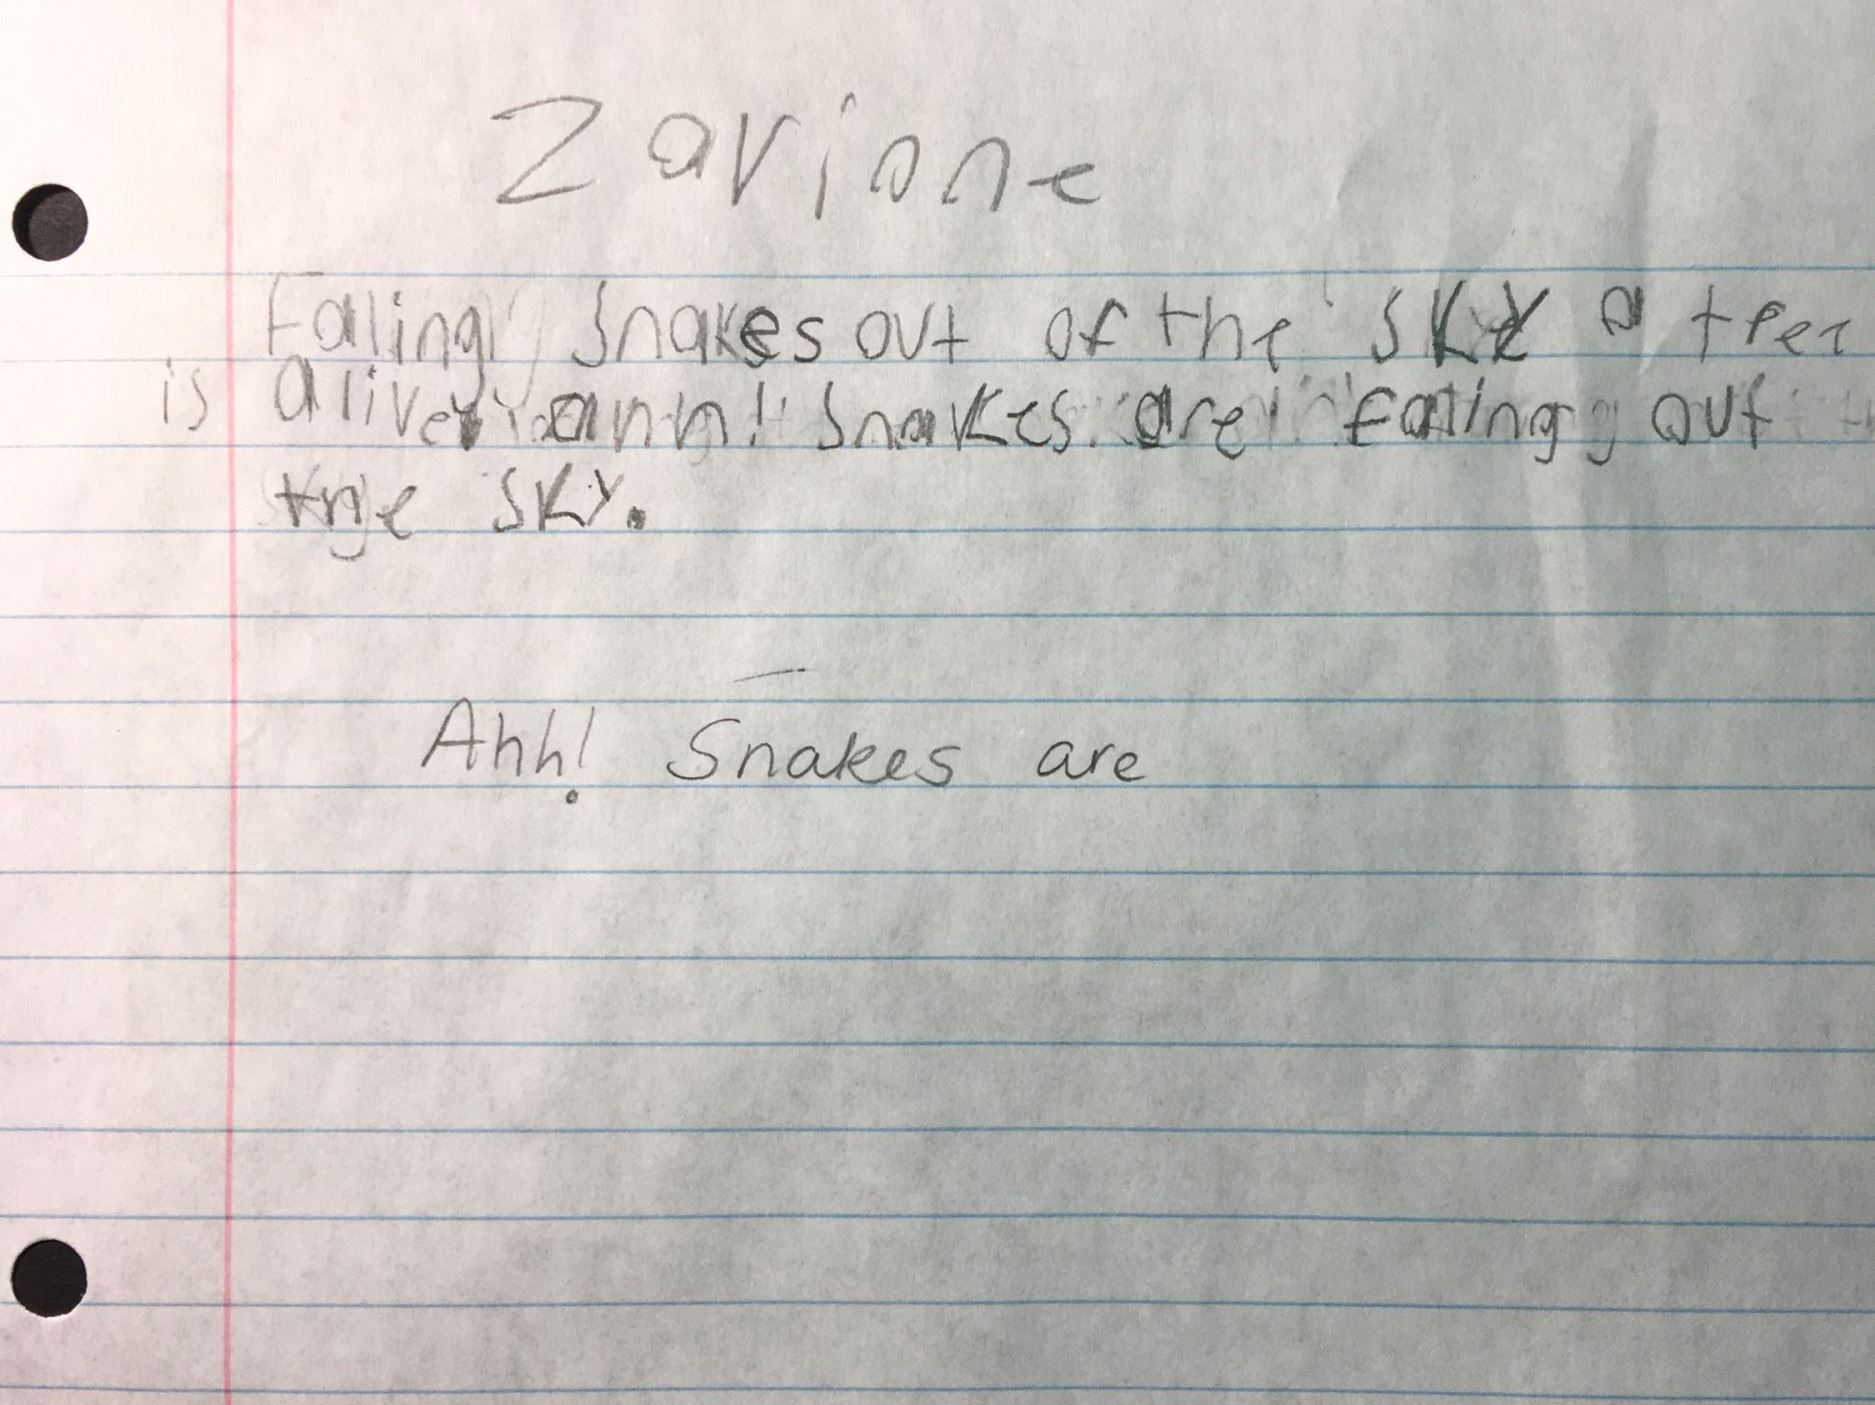 Zavione
Falling Snakes out of the SKY a tree
is alive ahh! Snakes are Falling out
the SKY.
Ahh! Snakes are